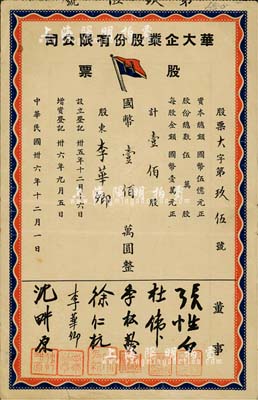 華大企業股份有限公司
股票
股票大字第玖伍號
資本總額國幣伍億元正
股份總數伍萬股
每股金額國幣壹萬元正
計壹佰股
國幣壹佰萬圓整
股東李華卿
設立登記卅五年十二月六日
增資登記卅六年九月五日
中華民國卅六年十二月一日
董事
張性白
杜偉
徐仁杭
李華卿